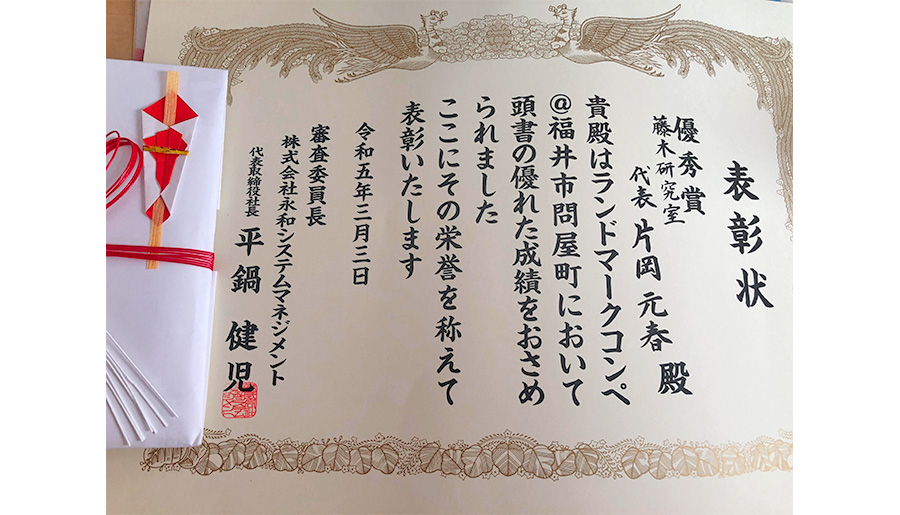 表彰状
優秀賞
藤木研究室
代表 片岡 元春 殿
貴殿はランドマークコンペ
@福井市問屋町において
頭書の優れた成績をおさめ
られました
ここにその栄誉を称えて
表彰いたします
令和五年三月三日
審査委員長
株式会社永和システムマネジメント
代表取締役社長 平鍋 健児